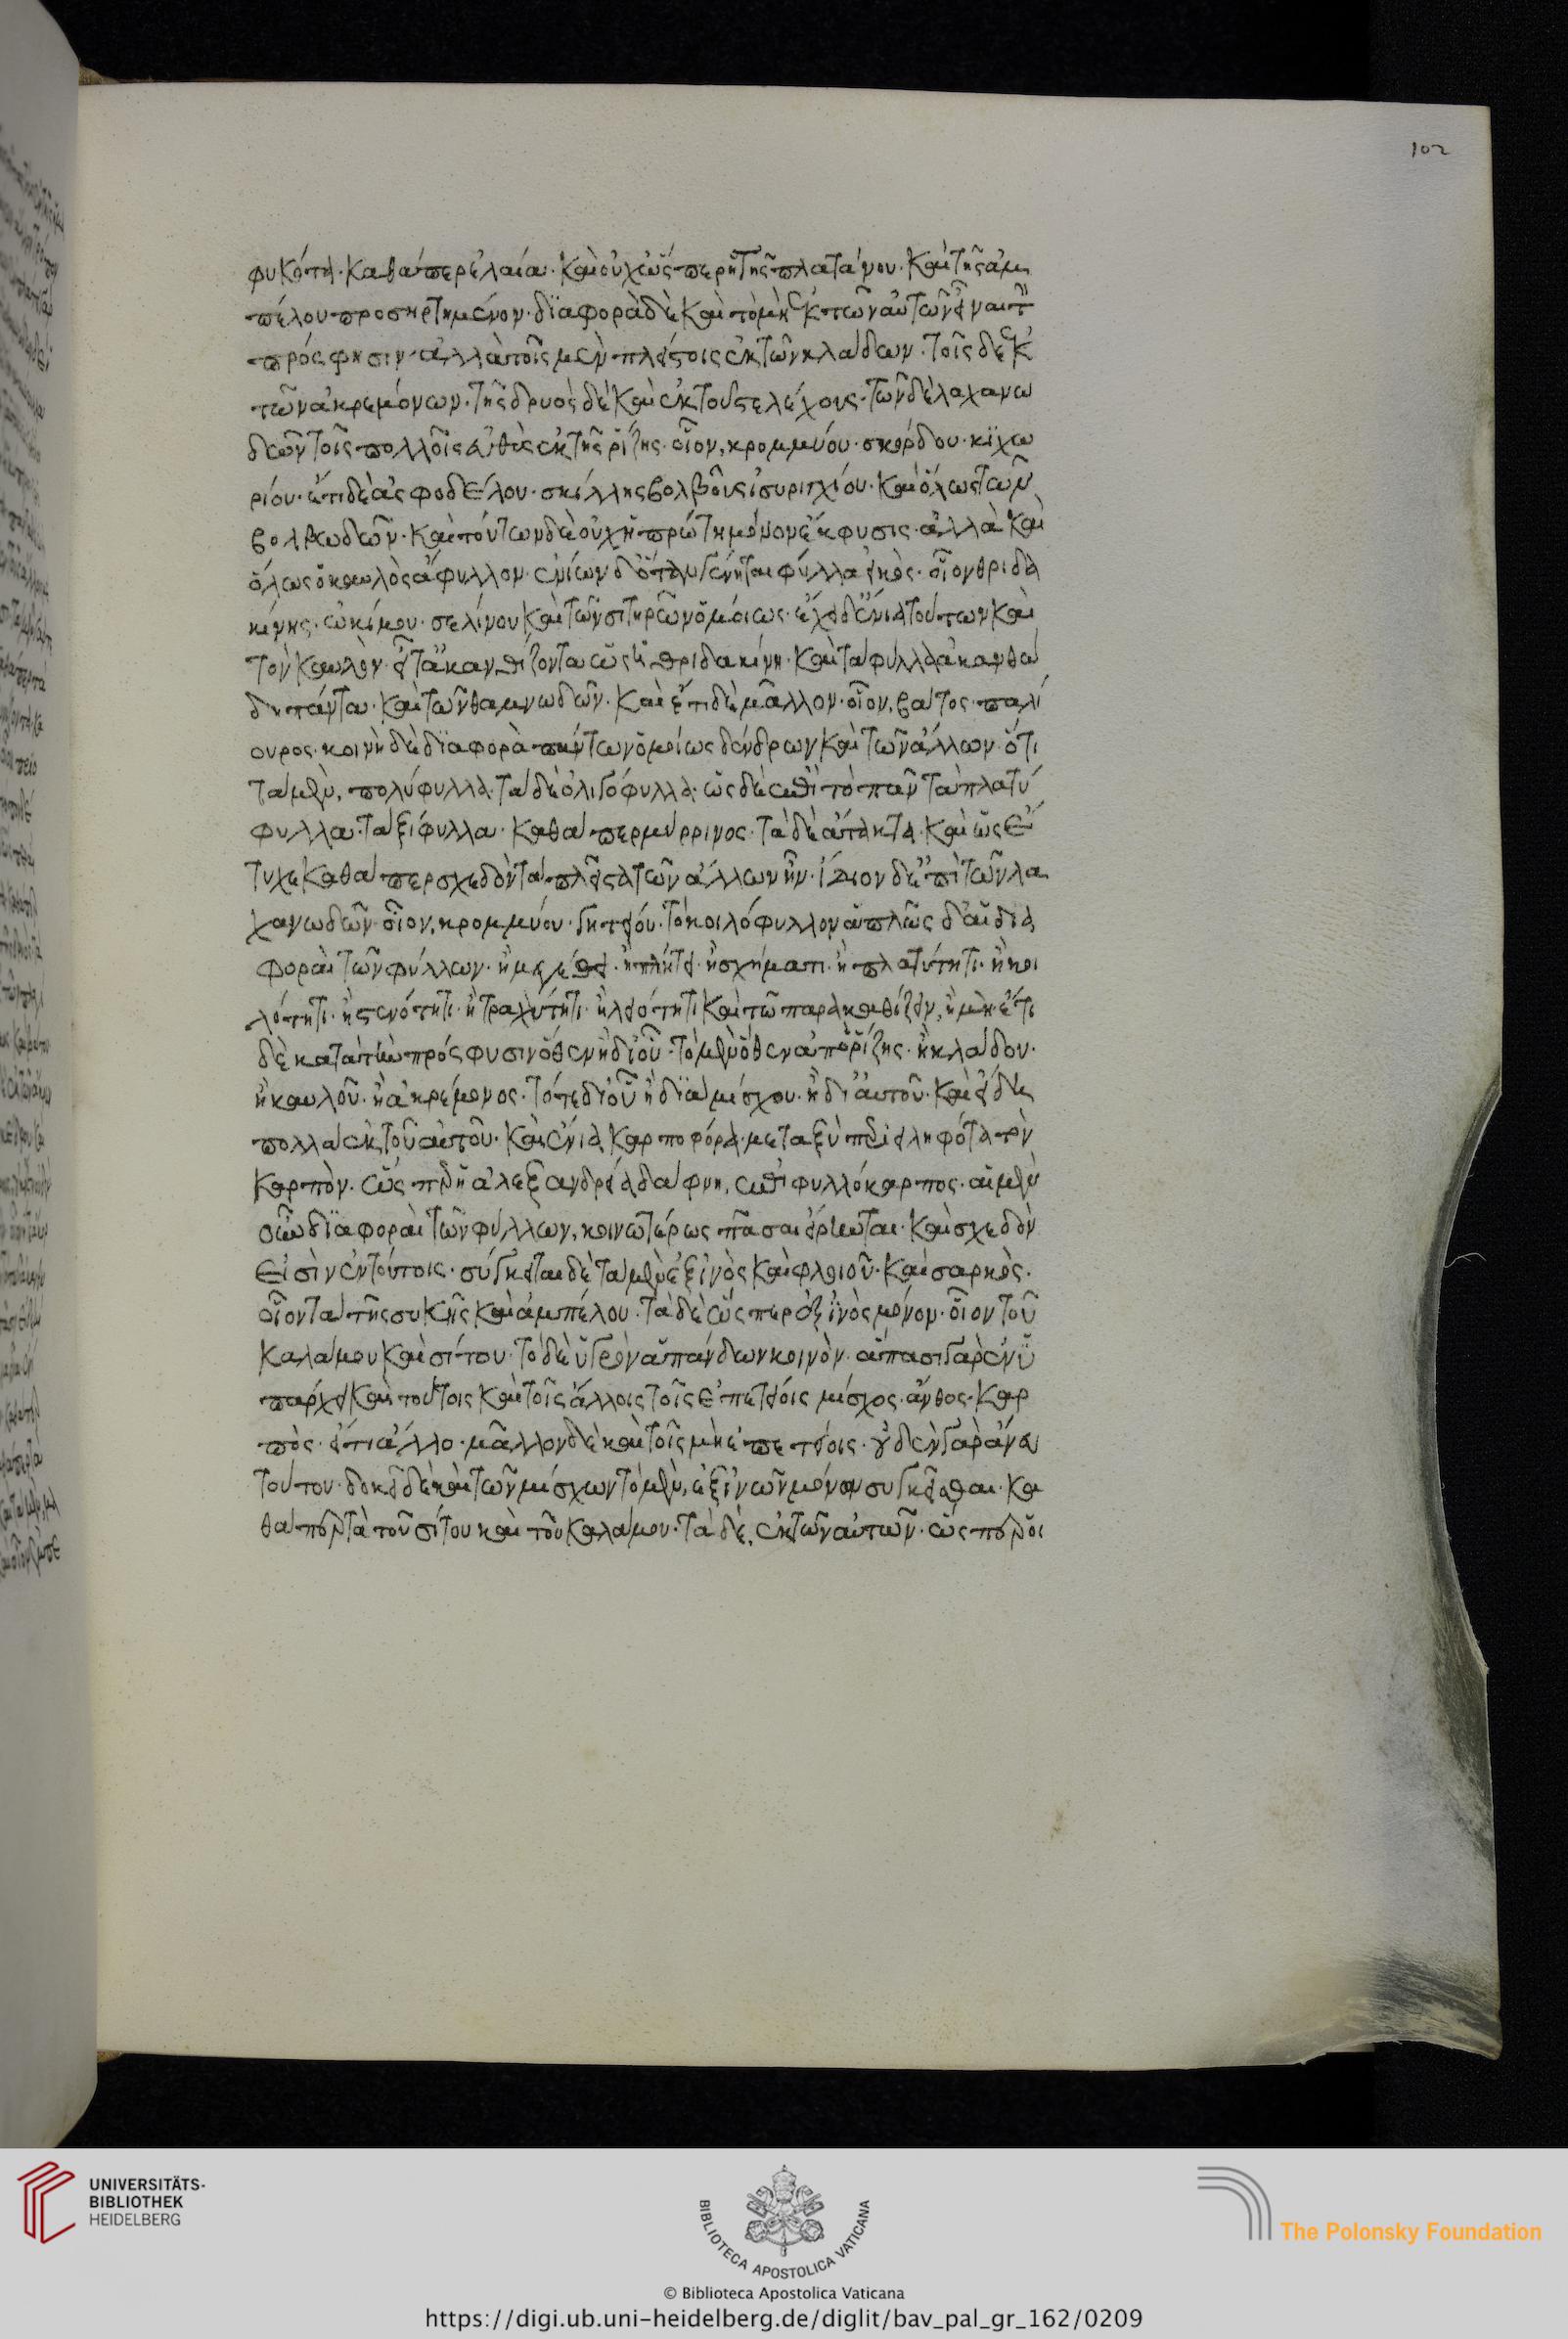 φυκότα· καθάπερ ἐλαία· καὶ οὐχ ὥσπερ ἡ τῆς πλατάνου· καὶ τῆς ἀμ
πέλου προσηρτημένον· διαφορὰ δὲ καὶ τὸ μὴ ἐκ τῶν αὐτῶν εἶναι τὴν
πρόσφησιν· ἀλλὰ τοῖς μὲν πλείστοις ἐκ τῶν κλάδων· τοῖς δὲ ἐκ
τῶν ἀκρεμόνων· τῆς δρυὸς δὲ καὶ ἐκ τοῦ στελέχους· τῶν δὲ λαχανω
δῶν τοῖς πολλοῖς εὐθὺς ἐκ τῆς ῥίζης· οἷον, κρομμύου· σκόρδου· κϊχω
ρίου· ἔτι δὲ ἀσφοδέλου· σκίλλης βολβοῦ σισυριγχίου· καὶ ὅλως τῶν
βολβωδῶν· καὶ τούτων δὲ οὐχ ἡ πρώτη μόνον ἔκφυσις· ἀλλὰ καὶ
ὅλως ὁ καυλὸς ἄφυλλον· ἐνίων δ' ὅταν γένηται φύλλα εἰκὸς· οἷον θριδα
κίνης· ὠκίμου· σελίνου καὶ τῶν σιτηρῶν ὁμοίως· ἔχει δ' ἔνια τούτων καὶ
τὸν καυλὸν· εἶτ' ἀκανθίζοντα ὡς ἡ θριδακίνη· καὶ τὰ φυλλάκανθώ
δη πάντα· καὶ τῶν θαμνωδῶν· καὶ ἔτι δὲ μᾶλλον· οἷον, βάτος· παλί
ουρος· κοινὴ δὲ διαφορὰ πάντων ὁμοίως δένδρων καὶ τῶν ἄλλων· ὅτι
τὰ μὲν, πολύφυλλα· τὰ δὲ ὀλιγόφυλλα· ὡς δὲ ἐπὶ τὸ πᾶν τὰ πλατύ
φυλλα· ταξίφυλλα· καθάπερ μύρρινος· τὰ δὲ ἄτακτα· καὶ ὡς ἔ
τυχε καθάπερ σχεδὸν τὰ πλεῖστα τῶν ἄλλων ἦν· ἴδιον δὲ ἐπὶ τῶν λα
χανωδῶν· οἷον, κρομμύου· γητείου· τὸ κοιλόφυλλον ἁπλῶς δ' αἱ δια
φοραὶ τῶν φύλλων· ἢ μεγέθει· ἢ πλήθει· ἢ σχήματι· ἢ πλατύτητι· ἢ κοι
λότητι· ἢ στενότητι· ἢ τραχύτητι· ἢ λειότητι καὶ τῶ παρακανθίζειν, ἢ μὴ· ἔτι
δὲ κατὰ τὴν πρόσφυσιν ὅθεν ἢ δι' οὗ· τὸ μὲν ὅθεν ἀπὸ ῥίζης· ἢ κλάδου·
ἢ καυλοῦ· ἢ ἀκρεμονος· τό τε δι' οὗ ἢ διὰ μίσχου· ἢ δι' αὐτοῦ· καὶ εἰ δὲ
πολλὰ ἐκ τοῦ αὐτοῦ· καὶ ἔνια καρποφόρα· μεταξὺ περιειληφότα τὸν
καρπὸν· ὥσπερ ἡ ἀλεξανδρεία δάφνη, ἐπιφυλλόκαρπος· αἱ μὲν
οὖν διαφοραὶ τῶν φύλλων, κοινωτέρως πᾶσαι εἴρηνται· καὶ σχεδὸν
εἰσὶν ἐν τούτοις· σύγκειται δὲ τὰ μὲν ἐξ ἰνὸς καὶ φλοιοῦ· καὶ σαρκὸς·
οἷον τὰ τῆς συκῆς καὶ ἀμπέλου· τὰ δὲ ὥσπερ ἐξ ἰνὸς μόνον· οἷον τοῦ
καλάμου καὶ σίτου· τὸ δὲ ὑγρὸν ἁπάντων κοινὸν· ἅπασι γὰρ ἐνυ
πάρχει καὶ τούτοις καὶ τοῖς ἄλλοις τοῖς ἐπετείοις μίσχος· ἄνθος· καρ
πὸς· εἴ τι ἄλλο· μᾶλλον δὲ καὶ τοῖς μὴ ἐπετείοις· οὐδὲν γὰρ ἄνευ
τούτου· δοκεῖ δὲ καὶ τῶν μίσχων τὸ μὲν, ἐξ ἰνῶν μόνον συγκεῖσθαι· κα
θάπερ τὰ τοῦ σίτου καὶ τοῦ καλάμου· τὰ δὲ, ἐκ τῶν αὐτῶν· ὥσπερ οἱ
102
UNIVERSITÄTS-
BIBLIOTHEK
HEIDELBERG
BIBLIOTECA APOSTOLICA VATICANA
The Polonsky Foundation
© Biblioteca Apostolica Vaticana
https://digi.ub.uni-heidelberg.de/diglit/bav_pal_gr_162/0209